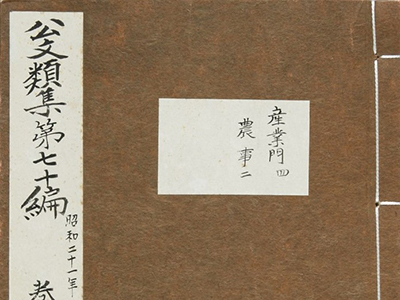 公文類集第七十編
昭和二十一年
巻
産業門四
農事二